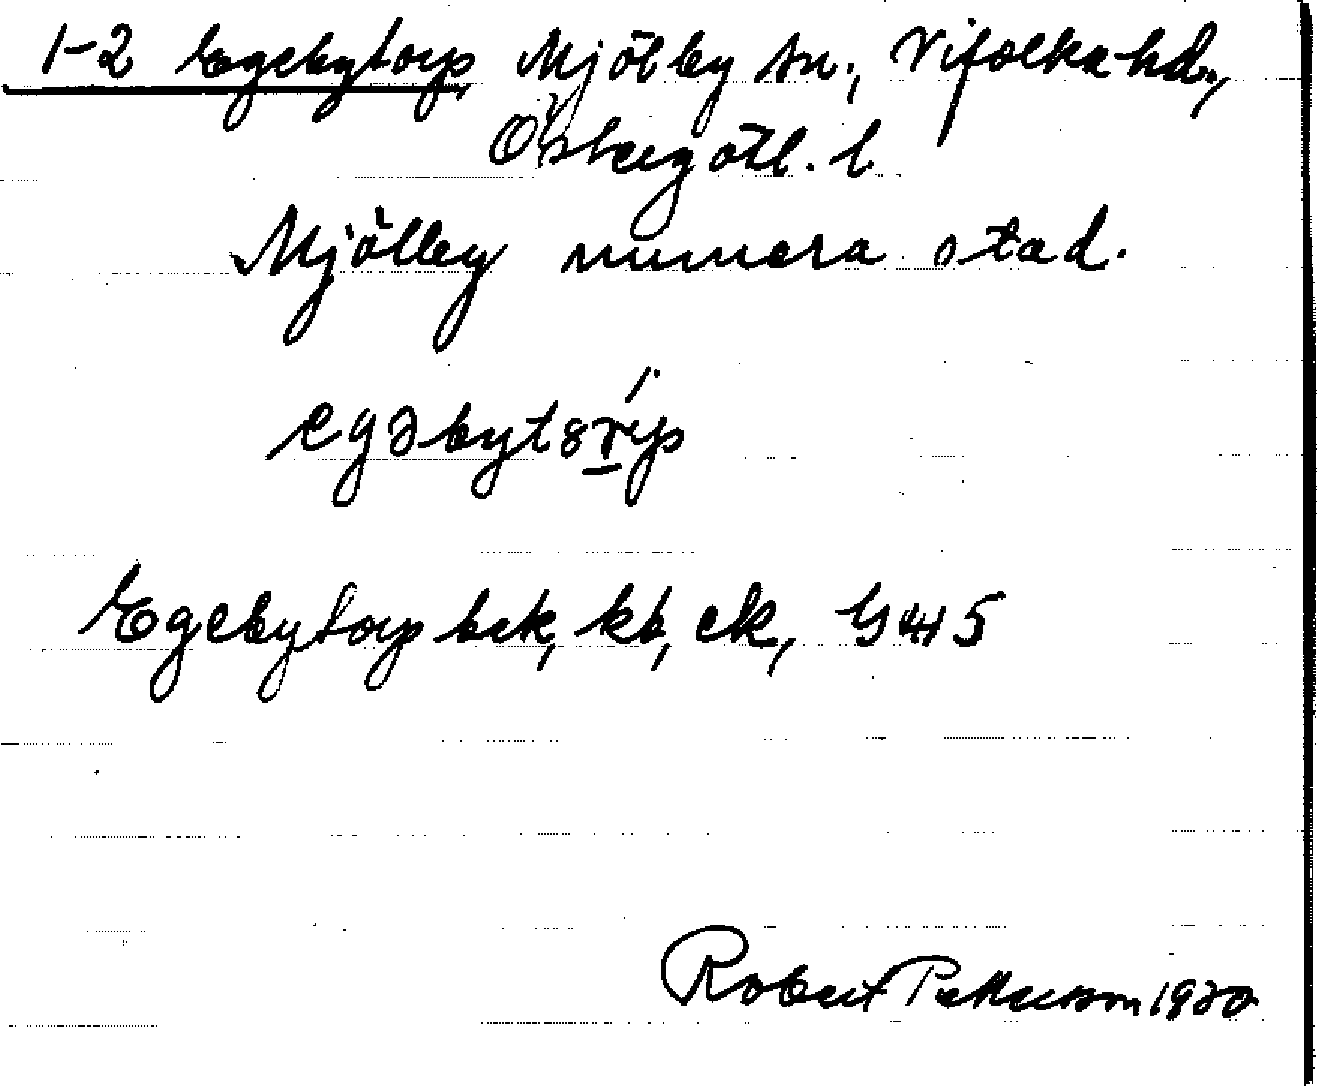 1-2 Egebytorp, Mjölby sn., Vifolka hd.,
Östergötl. l.
Mjölby numera stad.
Egebytorp bek, kb, ek, G 445
Robert Pettersson 1920